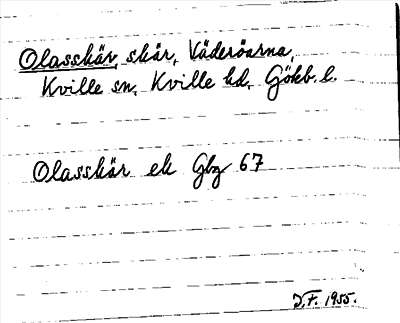 Olasskär, skär, Väderöarna,
Kville sn, Kville hd, Göteb. l.
Olasskär ek Gbg 67
J.F. 1955.